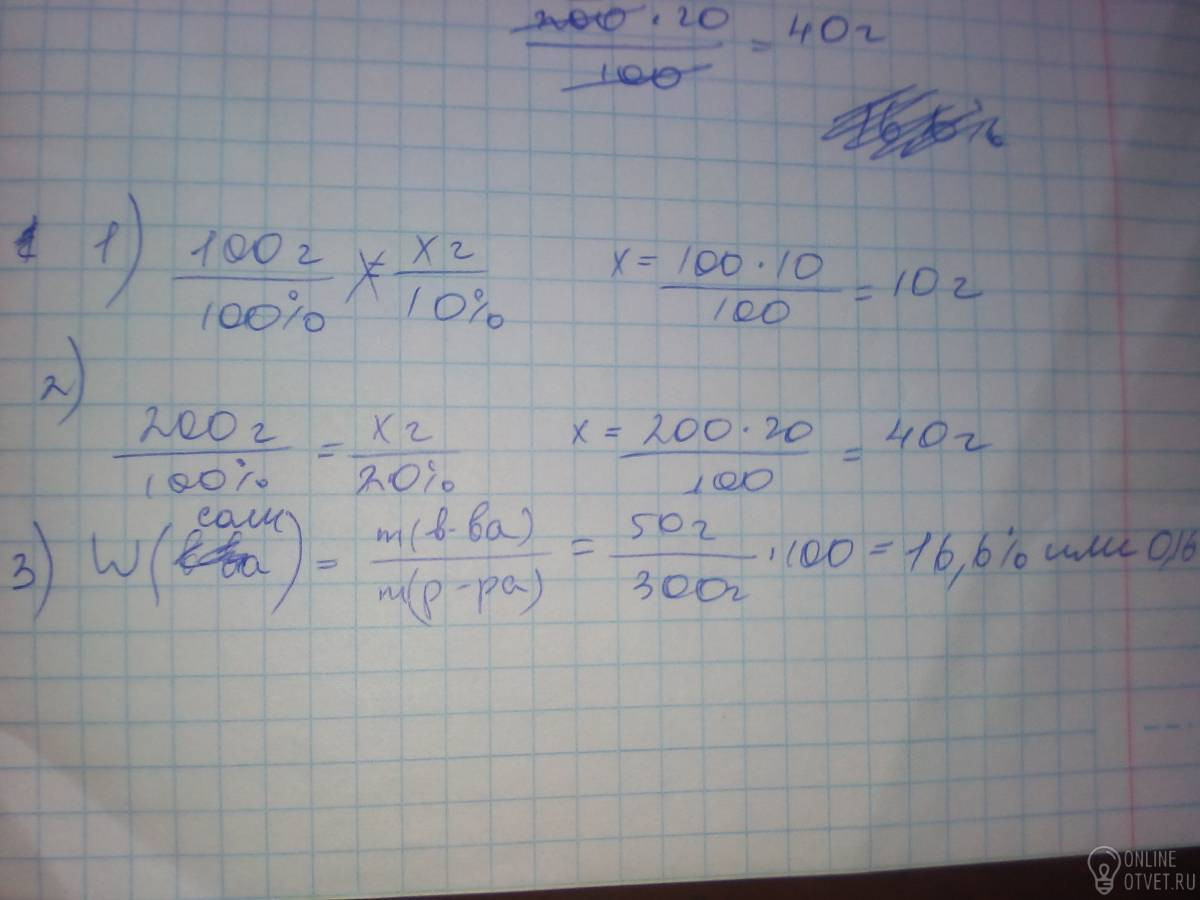 200 · 20 / 100 = 40 г
1) 100 г / 100% = x г / 10% x = 100 · 10 / 100 = 10 г
2) 200 г / 100% = x г / 20% x = 200 · 20 / 100 = 40 г
3) W (соли) = m(в-ва) / m(р-ра) = 50 г / 300 г · 100 = 16,6% или 0,16
ONLINE
OTVET.RU